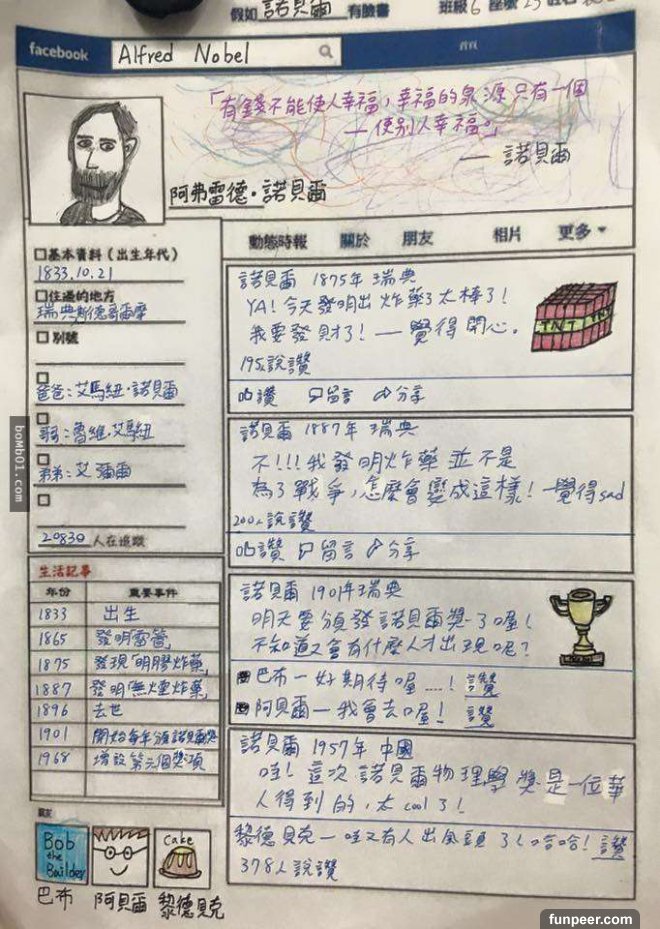 假如 諾貝爾 有臉書
班級6 座號25 姓名
facebook
Alfred Nobel
首頁
「有錢不能使人幸福，幸福的泉源只有一個
—使別人幸福。」
—諾貝爾
阿弗雷德·諾貝爾
動態時報 關於 朋友 相片 更多
基本資料（出生年代）
1833.10.21
住過的地方
瑞典斯德哥爾摩
別號
爸爸：艾馬紐·諾貝爾
哥哥：魯維·艾馬紐
弟弟：艾彌爾
20830 人在追蹤
生活記事
年份 重要事件
1833 出生
1865 發明雷管
1875 發現「明膠炸藥」
1887 發明「無煙炸藥」
1896 去世
1901 開始每年頒諾貝爾獎
1968 增設第六個獎項
Bob
the
Builder
巴布
阿貝爾
Cake
黎德貝克
諾貝爾 1875年 瑞典
YA！今天發明出炸藥了太棒了！
我要發財了！—覺得開心。
TNT
195人說讚
讚 留言 分享
諾貝爾 1887年 瑞典
不!!!我發明炸藥並不是
為了戰爭，怎麼會變成這樣！—覺得sad
200人說讚
讚 留言 分享
諾貝爾 1901年瑞典
明天要頒發諾貝爾獎了喔！
不知道又會有什麼人才出現呢？
巴布—好期待喔……！ 讚
阿貝爾—我會去喔！ 讚
諾貝爾 1957年 中國
哇！這次諾貝爾物理學獎是一位華
人得到的，太cool了！
黎德貝克—哇又有人出風頭了(哈哈！ 讚
378人說讚
boMb01.com
funpeer.com